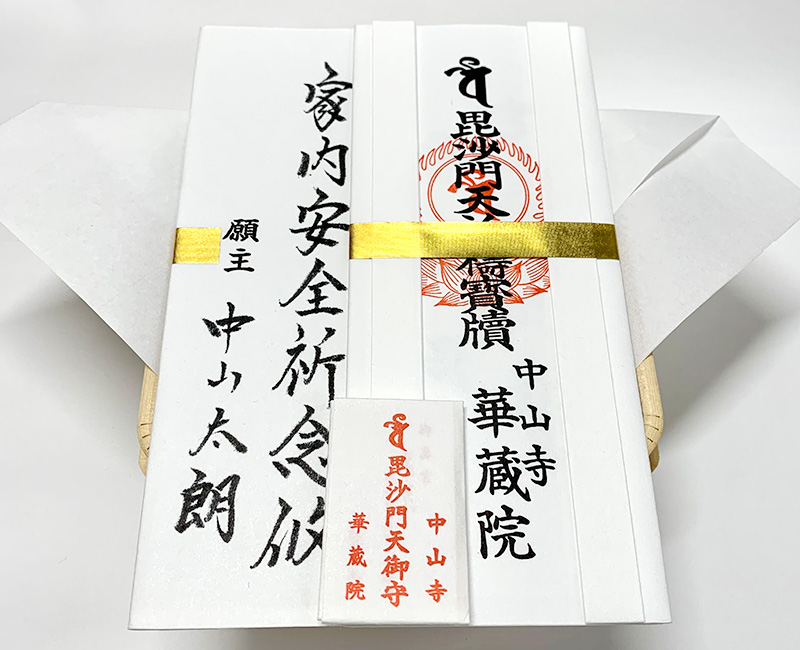 毘沙門天 寶牘
中山寺
華蔵院
家内安全祈念攸
願主 中山太朗
中山寺
毘沙門天御守
華蔵院